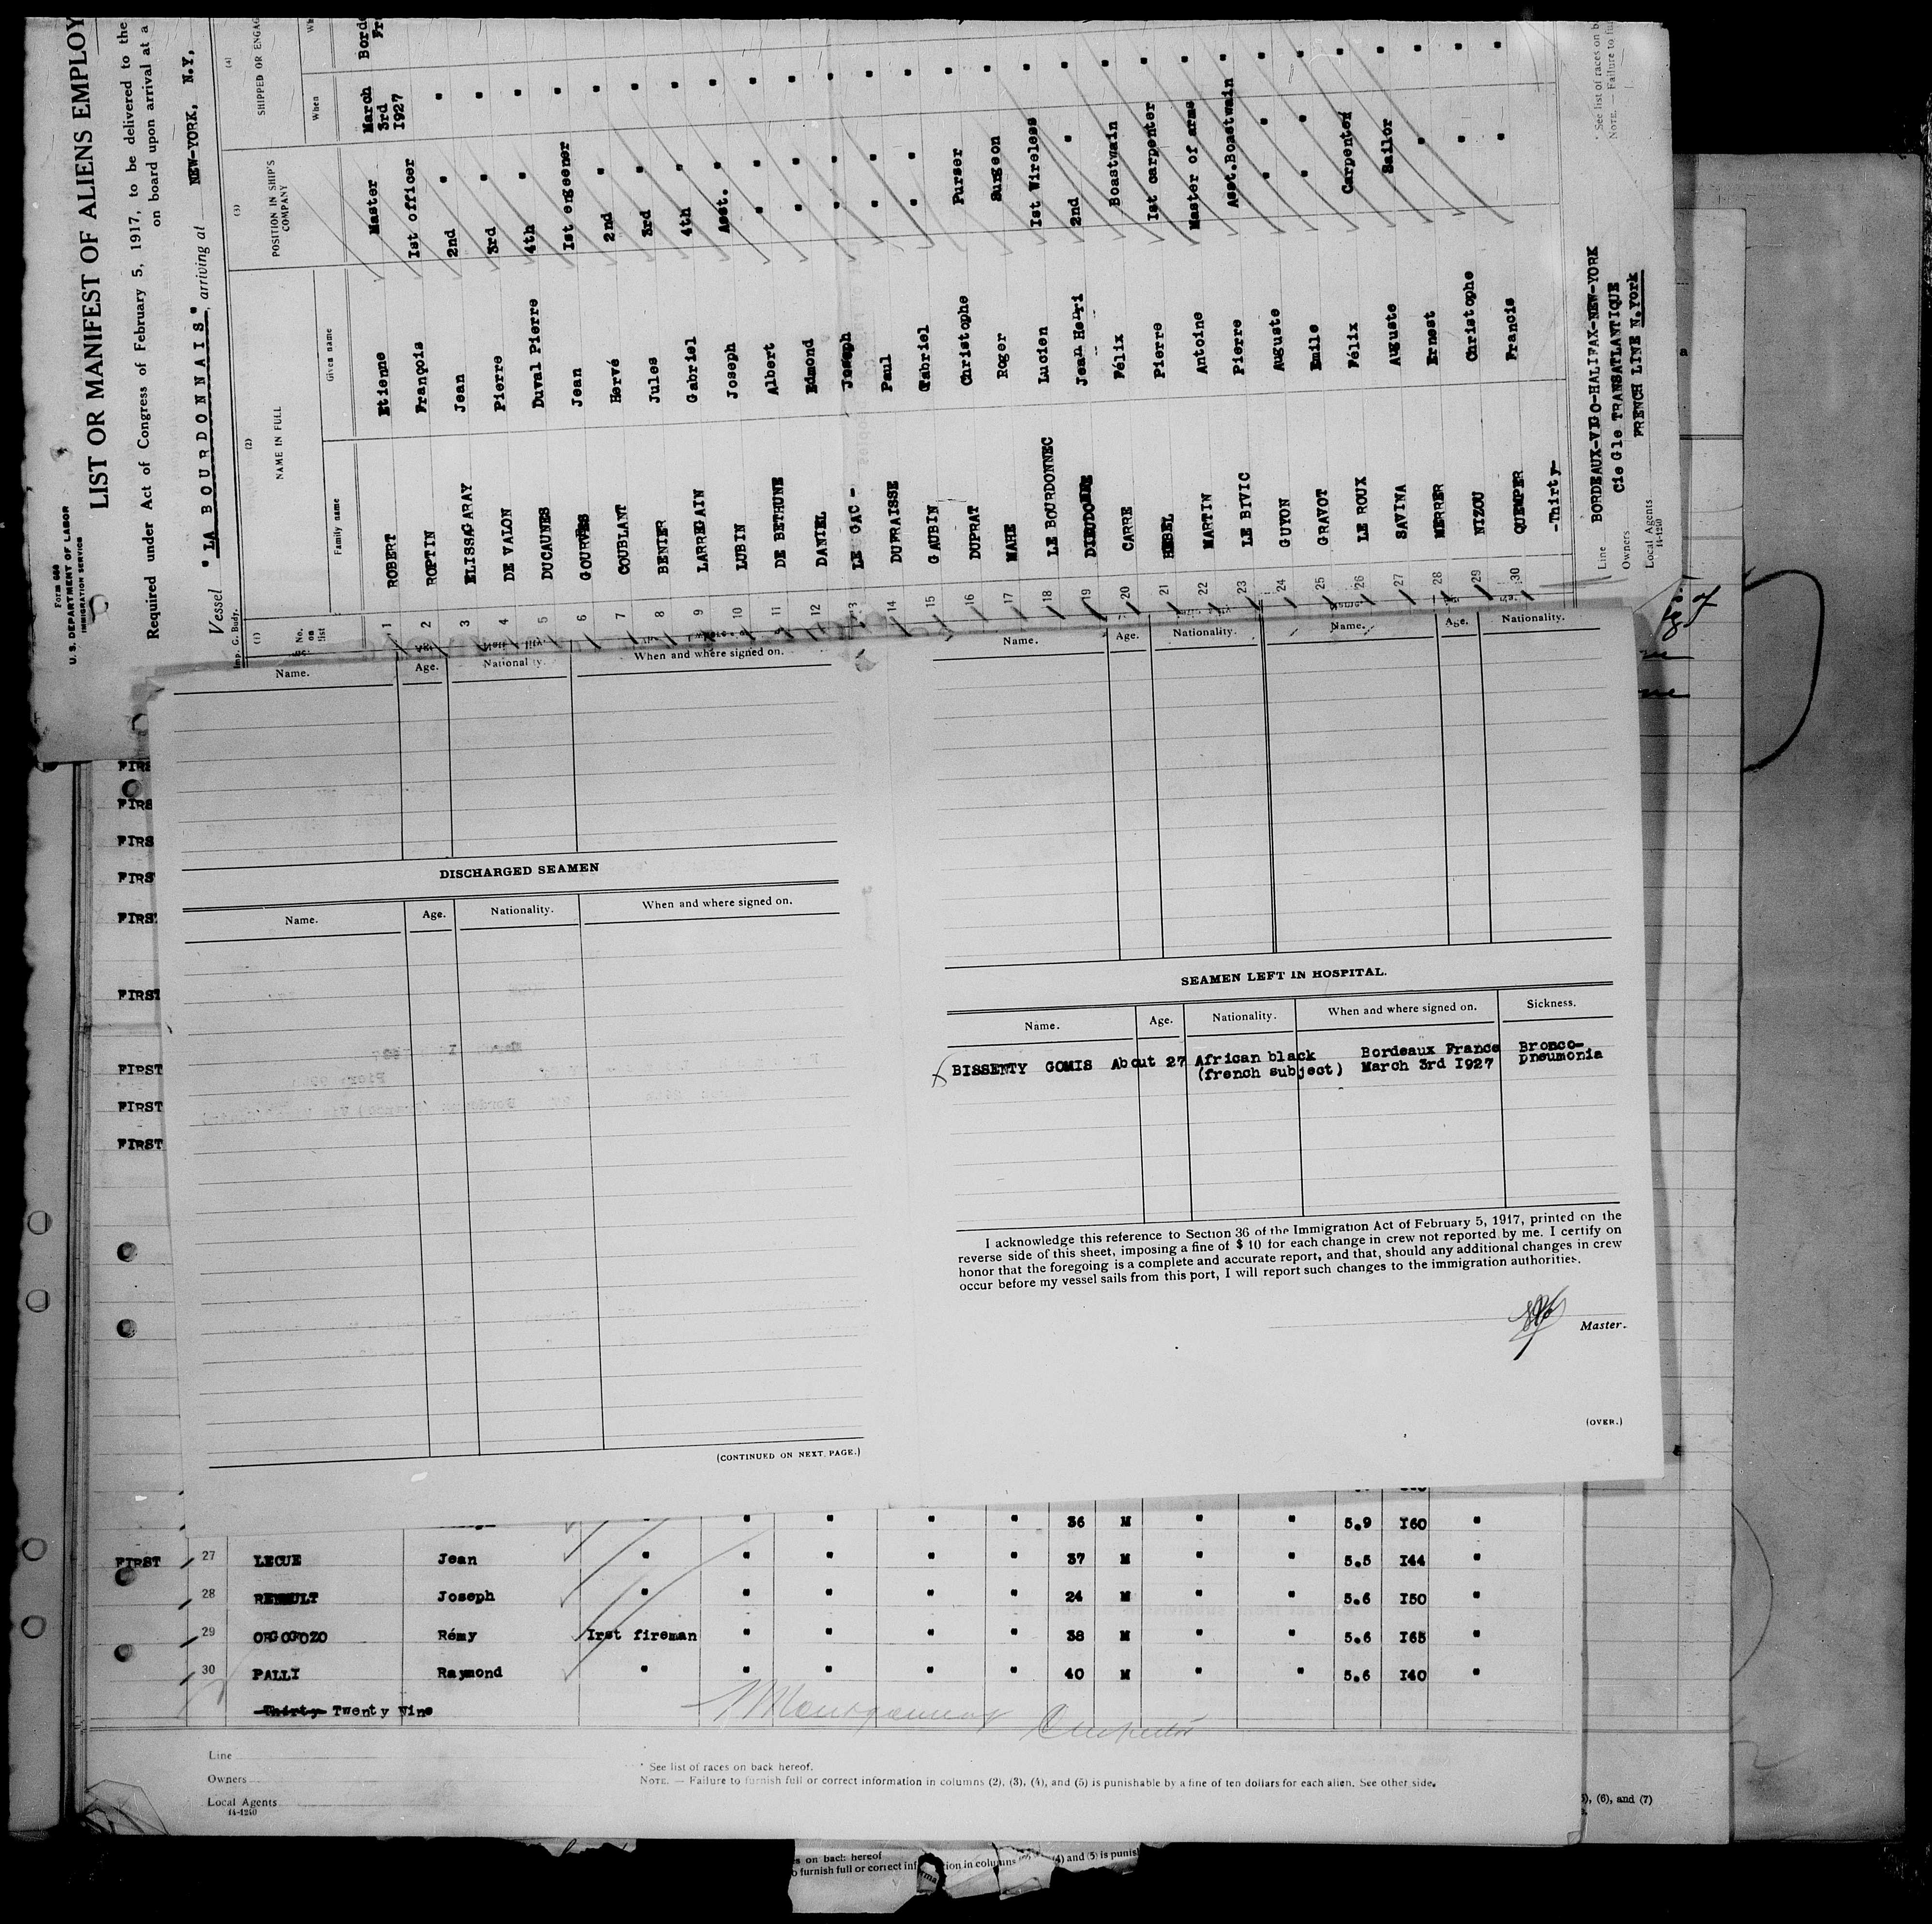 Form 689
U. S. DEPARTMENT OF LABOR
IMMIGRATION SERVICE
LIST OR MANIFEST OF ALIENS EMPLOY
Required under Act of Congress of February 5, 1917, to be delivered to the
on board upon arrival at a
Vessel "LA BOURDONNAIS", arriving at NEW-YORK, N.Y,
(1) (2) (3) (4)
No. on list NAME IN FULL POSITION IN SHIP'S COMPANY SHIPPED OR ENGAG
Family name Given name When
1 ROBERT Etienne Master March 3rd 1927
2 ROPTIN François 1st officer "
3 ELISSAGARAY Jean 2nd " "
4 DE VALON Pierre 3rd " "
5 DUCAUNES Duval Pierre 4th " "
6 GOURVES Jean 1st engeener "
7 COUBLANT Hervé 2nd " "
8 BENIER Jules 3rd " "
9 LARREGAIN Gabriel 4th " "
10 LUBIN Joseph Asst. " "
11 DE BETHUNE Albert " " "
12 DANIEL Edmond " " "
13 LE GAC - Joseph " " "
14 DUFRAISSE Paul " " "
15 GAUBIN Gabriel " " "
16 DUPRAT Christophe Purser "
17 MAHE Roger Surgeon "
18 LE BOURDONNEC Lucien Ist Wireless "
19 DIEUDONNE Jean Henri 2nd " "
20 CARRE Félix Boastwain "
21 HEBEL Pierre Ist carpenter "
22 MARTIN Antoine Master of arms "
23 LE BIVIC Pierre Asst.Boastwain "
24 GUYON Auguste " " "
25 GRAVOT Emile " " "
26 LE ROUX Félix Carpented "
27 SAVINA Auguste Sailor "
28 MERRER Ernest " "
29 NIZOU Christophe " "
30 QUEMPER Francis " "
-Thirty-
Line BORDEAUX-VIGO-HALIFAX-NEW-YORK
Owners Cie Gle TRANSATLANTIQUE
Local Agents FRENCH LINE N.York
14-1240
Name. Age. Nationality. When and where signed on.
DISCHARGED SEAMEN
Name. Age. Nationality. When and where signed on.
(CONTINUED ON NEXT PAGE.)
Name. Age. Nationality. Name. Age. Nationality.
SEAMEN LEFT IN HOSPITAL.
Name. Age. Nationality. When and where signed on. Sickness.
BISSENTY GOMIS About 27 African black Bordeaux France Bronco-
(french subject) March 3rd 1927 pneumonia
I acknowledge this reference to Section 36 of the Immigration Act of February 5, 1917, printed on the
reverse side of this sheet, imposing a fine of $ 10 for each change in crew not reported by me. I certify on
honor that the foregoing is a complete and accurate report, and that, should any additional changes in crew
occur before my vessel sails from this port, I will report such changes to the immigration authorities.
Master.
(OVER.)
FIRST
FIRST
FIRST
FIRST
" " " " " 36 M " " 5.9 I60 "
FIRST 27 LECUE Jean " " " " " 37 M " " 5.5 I44 "
28 RENAULT Joseph " " " " " 24 M " " 5.6 I50 "
29 ORGOGOZO Rémy Irst fireman " " " " 38 M " " 5.6 I65 "
30 PALLI Raymond " " " " " 40 M " " 5.6 I40 "
Thirty Twenty Nine
Line
Owners
Local Agents
14-1240
* See list of races on back hereof.
NOTE. — Failure to furnish full or correct information in columns (2), (3), (4), and (5) is punishable by a fine of ten dollars for each alien. See other side.
(6), and (7)
on back hereof
furnish full or correct
in columns
(4) and (5) is